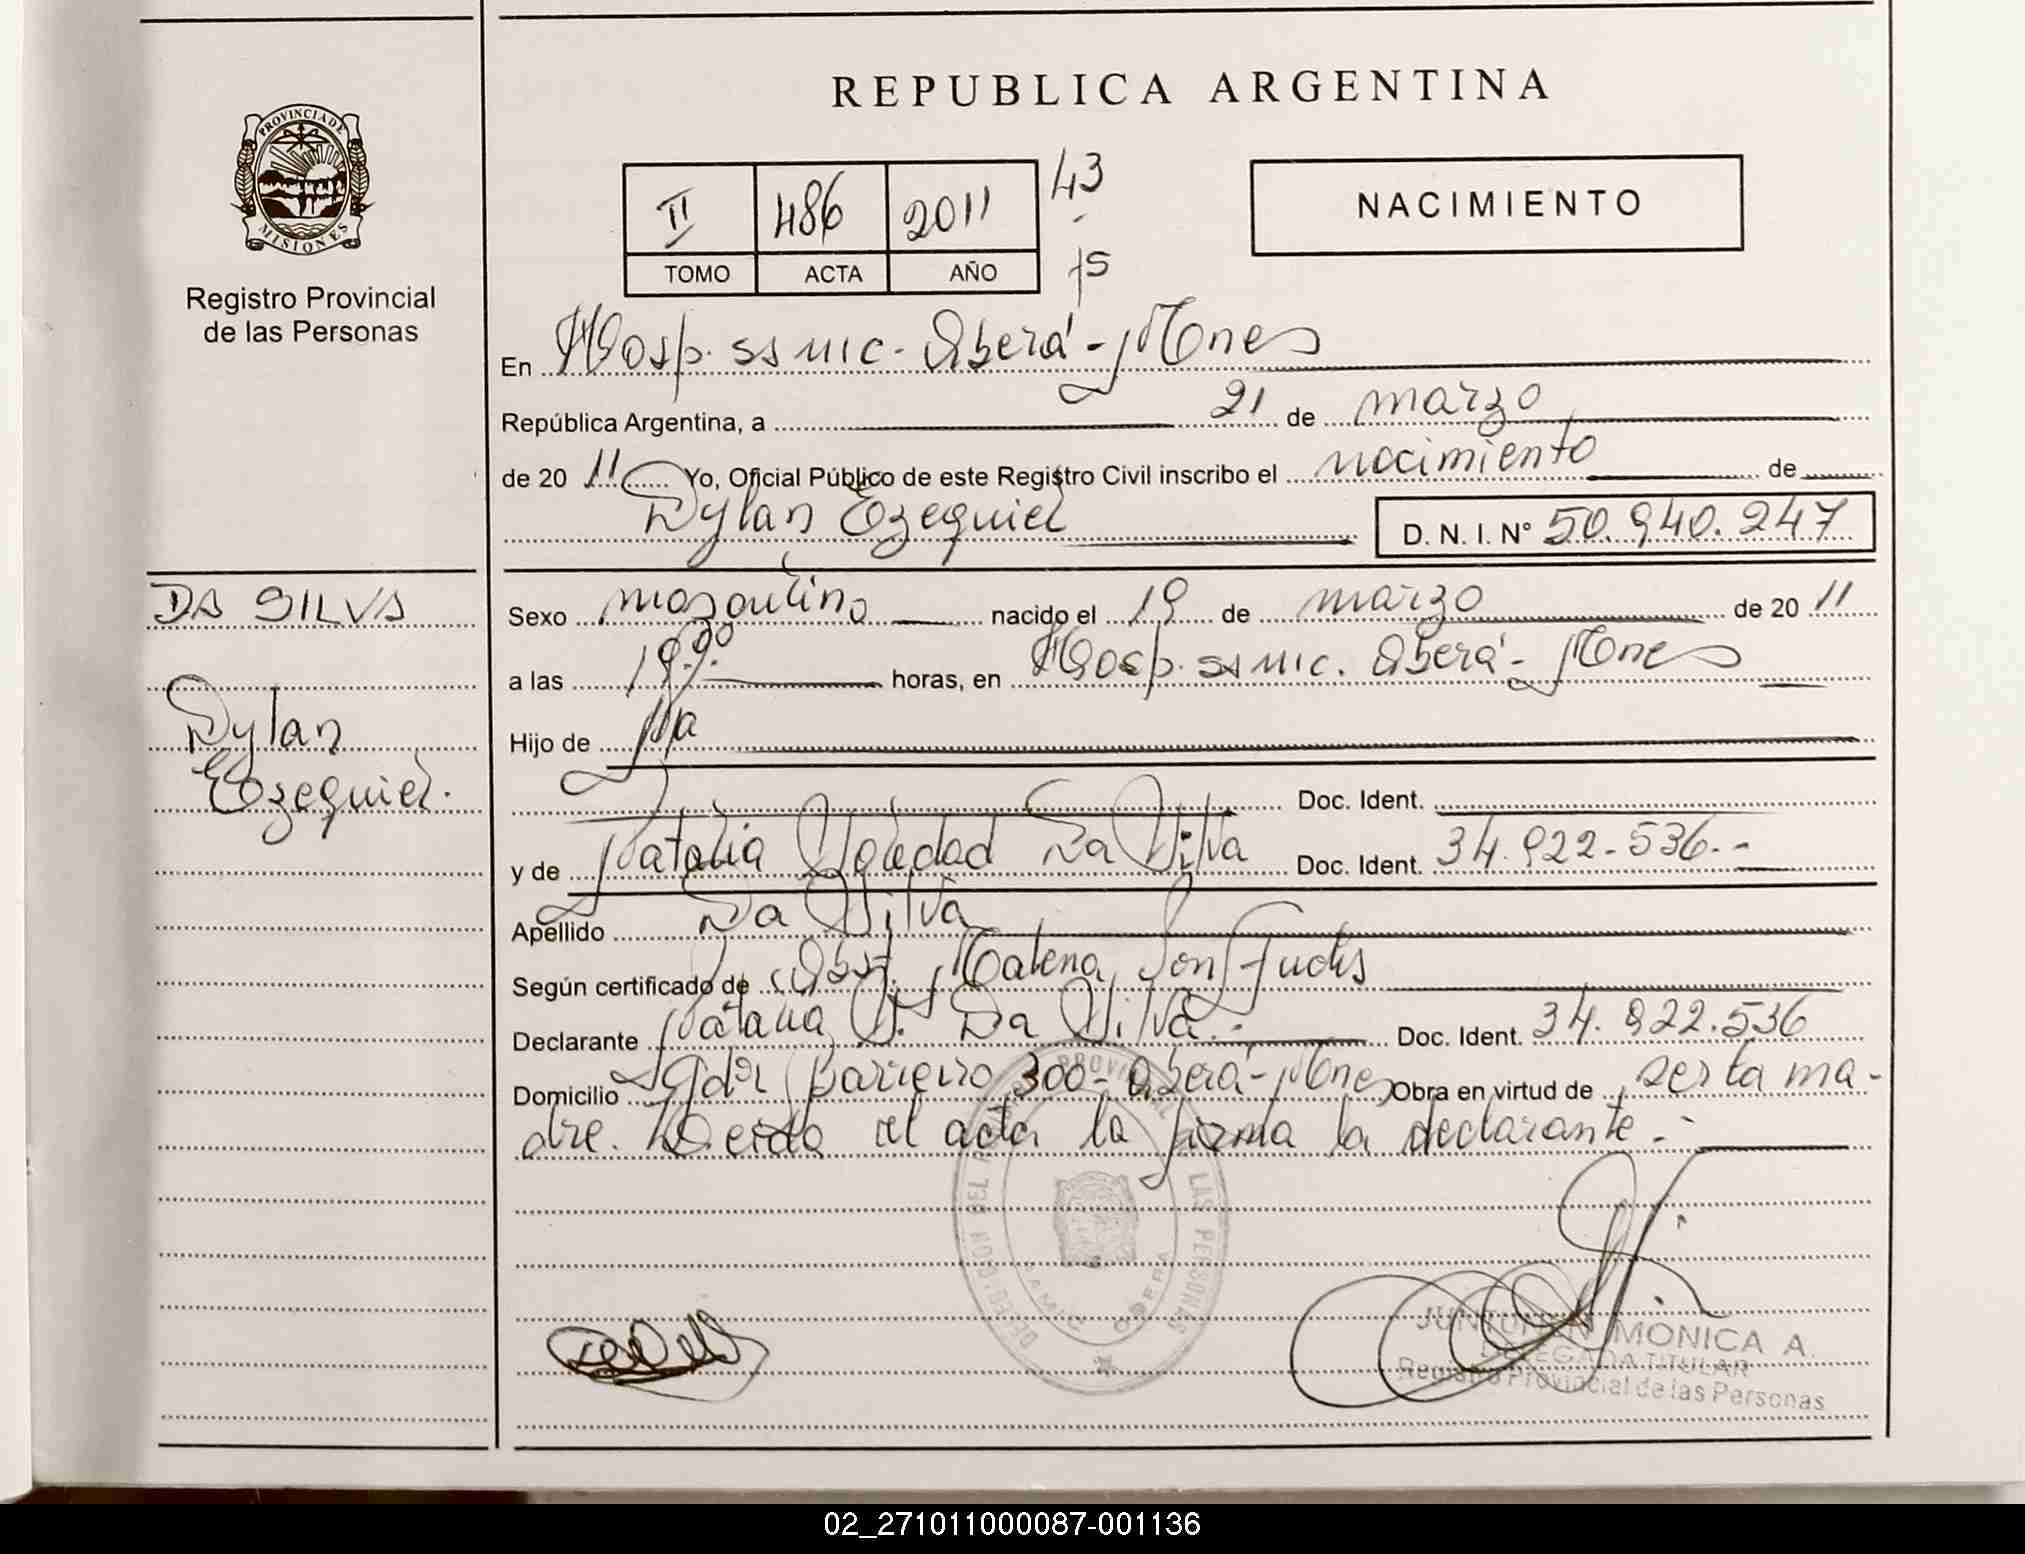 REPUBLICA ARGENTINA
PROVINCIA DE
MISIONES
Registro Provincial
de las Personas
II 486 2011
TOMO ACTA AÑO
43
75
NACIMIENTO
En Hosp. SS MIC. Oberá - Mnes
República Argentina, a 21 de marzo
de 20 11 Yo, Oficial Público de este Registro Civil inscribo el nacimiento de
Dylan Ezequiel D. N. I. N° 50.940.247
DA SILVA
Dylan
Ezequiel.
Sexo masculino nacido el 19 de marzo de 20 11
a las horas, en Hosp. SS MIC. Oberá - Mnes
Hijo de
Doc. Ident.
y de Natalia Soledad Da Silva Doc. Ident. 34.922.536.-
Apellido Da Silva
Según certificado de Obst. Malena
Declarante Natalia S. Da Silva.- Doc. Ident. 34.922.536
Domicilio Gdor Barreiro 300 - Oberá - Mnes Obra en virtud de ser la ma-
dre. Leída el acta la firma la declarante.-
DIRECCION DEL REGISTRO PROVINCIAL DE LAS PERSONAS
OBERA
JUNTUNEN MONICA A.
DELEGADA TITULAR
Registro Provincial de las Personas
02_271011000087-001136